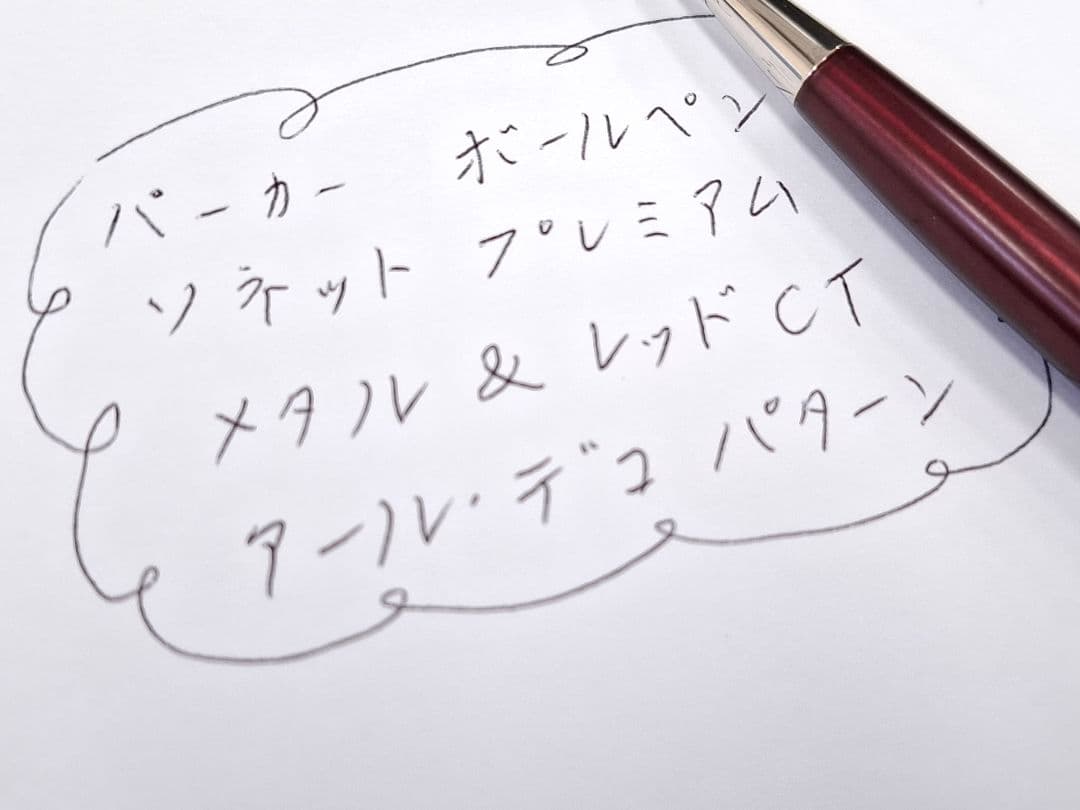 パーカー ボールペン
ソネット プレミアム
メタル & レッドCT
アール・デコ パターン